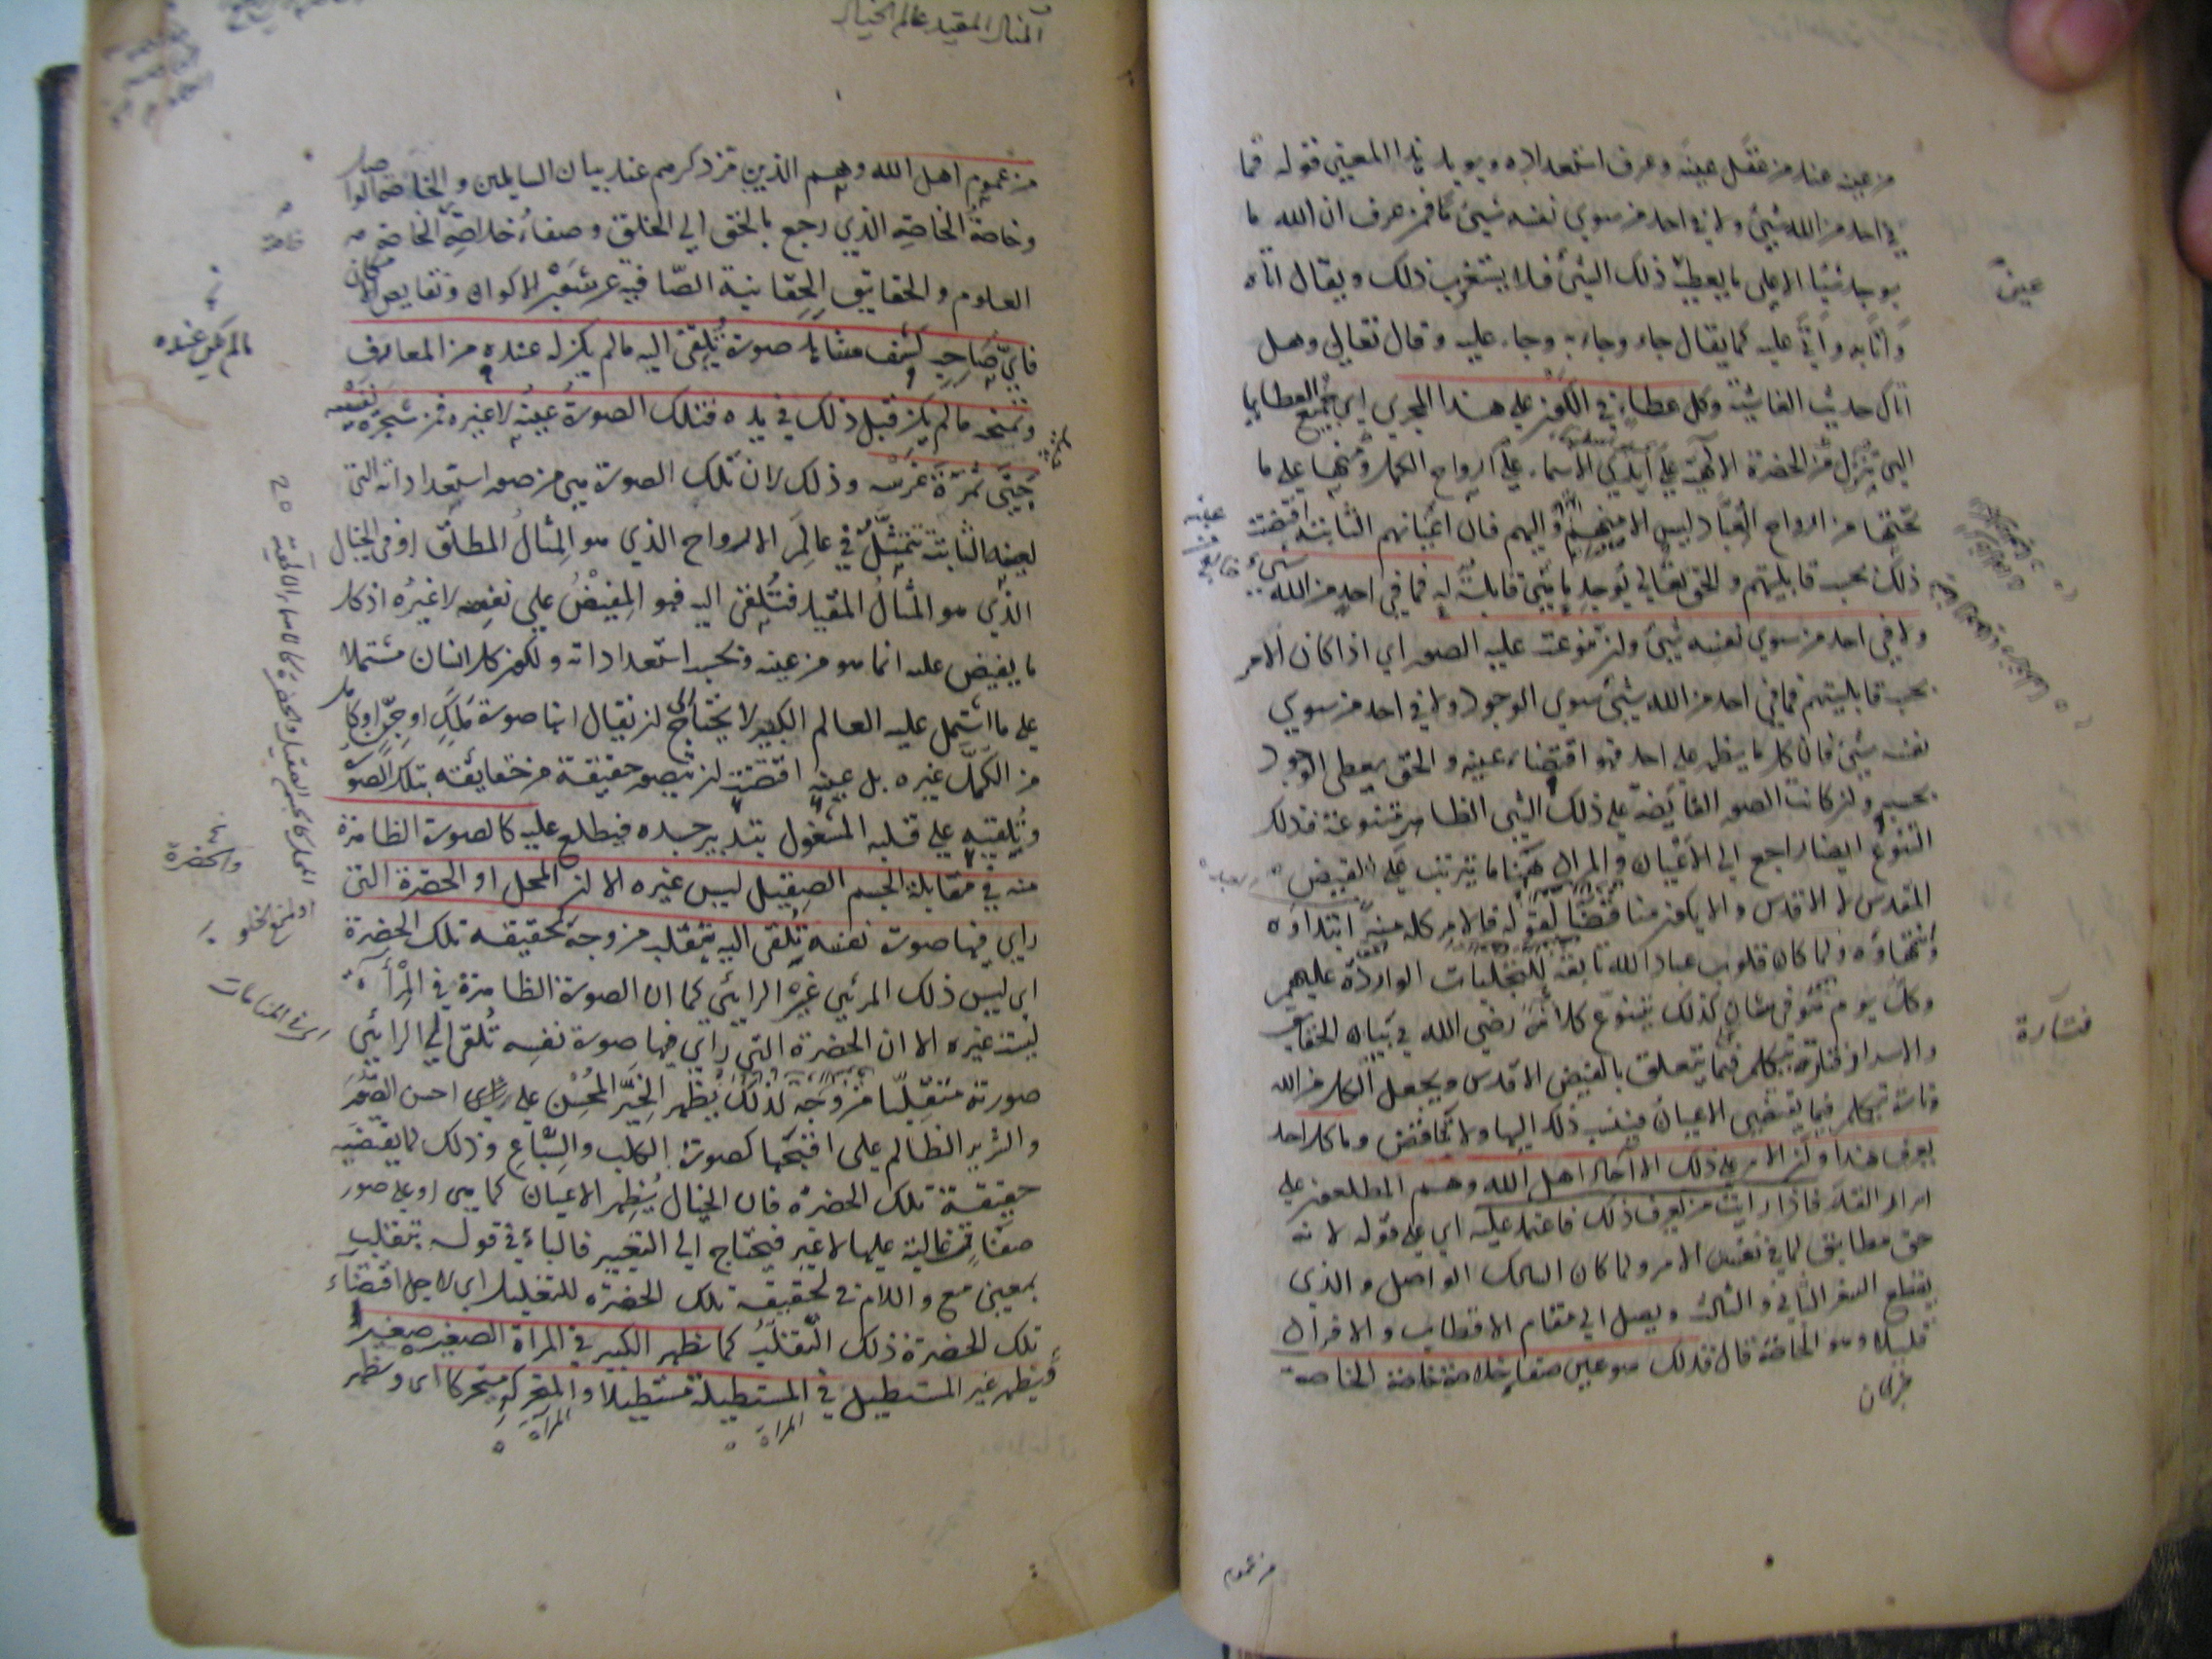 من عينه عند من عقل عينه وعرف استعداده ويؤيد هذا المعنى قوله فما
في احد من الله شيئ ولا في احد من سوي نفسه شيئ فمن عرف ان الله ما
يوجد شيئا الا على ما يعطيه ذلك الشيئ فلا يستغرب ذلك ويقال اتاه
وأتا به وأتى عليه كما يقال جاء وجاء به وجاء عليه وقال تعالى وهل
اتاك حديث الغاشية وكل عطاء في الكون على هذا المجري اي جميع العطايا
التي تنزل من الحضرة الالهية على ايدي الاسماء على ارواح الكمل ومنها على ما
تحتها من ارواح العباد ليس الا منهم واليهم فان اعيانهم الثابتة اقتضت
ذلك بحسب قابليتهم والحق تعالى يوجد ما هي قابلة له فما في احد من الله شيء
ولا في احد من سوي نفسه شيئ وان تنوعت عليه الصور اي اذا كان الامر
بحسب قابليتهم فما في احد من الله شيئ سوي الوجود ولا في احد من سوي
نفسه شيئ فان كل ما يظهر على احد فهو اقتضاء عينه والحق يعطي الوجود
بحسبه وان كانت الصور الفائضة على ذلك الشيئ الظاهر متنوعة فذلك
التنوع ايضا راجع الى الاعيان والمراد ههنا ما يترتب على الفيض
المقدس لا الاقدس والا يكون مناقضا لقوله فالامر كله منه ابتداؤه
وانتهاؤه ولما كان قلوب عباد الله تابعة للتجليات الواردة عليهم
وكل يوم هو في شان كذلك يتنوع كلامه رضي الله في بيان الحقايق
والاسرار فتارة يتكلم فيما يتعلق بالفيض الاقدس ويجعل الكل من الله
وتارة يتكلم فيما يقتضي الاعيان فينسب ذلك اليها ولا تناقض وما كل احد
يعرف هذا وان الامر على ذلك الا آحاد اهل الله وهم المطلعون على
اسرار القدر فاذا رايت من يعرف ذلك فاعتمد عليه اي على قوله لانه
حق مطابق لما في نفس الامر ولما كان السالك الواصل والذي
يقطع السفر الثاني والثالث ويصل الى مقام الاقطاب والافراد
قليلا وهو الخاصة قال فذلك هو عين صفاء خلاصة خاصة الخاصة
عين
فتارة
من عموم
المثال المقيد عالم الخيال
من عموم اهل الله وهم الذين مر ذكرهم عند بيان السايلين والخاصة
وخاصة الخاصة الذي رجع بالحق الى الخلق وصفاء خلاصة الخاصة هو
العلوم والحقايق الحقانية الصافية عن شوب الاكوان ونقايص
فاي صاحب كشف شاهد صورة تُلقى اليه مالم يكن له عنده من المعارف
وتمنحه مالم يكن قبل ذلك في يده فتلك الصورة عينه لا غيره فمن شجرة نفسه
جني ثمرة غرسه وذلك لان تلك الصورة هي من صور استعداداته التي
لعينه الثابتة تتمثل في عالم الارواح الذي هو المثال المطلق او في الخيال
الذي هو المثال المقيد فتلقى اليه فهو المفيض على نفسه لا غيره اذ كل
ما يفيض عليه انما هو من عينه وبحسب استعداداته ولكون كل انسان مشتملا
على ما اشتمل عليه العالم الكبير لا يحتاج الى ان يقال انها صورة ملك او جن او كامل
من الكمل غيره بل عينه اقتضت ان تتصور حقيقة من حقايقه بتلك الصورة
وتلقيه على قلبه المشغول بتدبير جسده فيطلع عليه كالصورة الظاهرة
منه في مقابلة الجسم الصقيل ليس غيره الا ان المحل او الحضرة التي
راي فيها صورة نفسه تلقى اليه بتقلب من وجه لحقيقه تلك الحضرة
اي ليس ذلك المرئي غير الرائي كما ان الصورة الظاهرة في المرآة
ليست غيره الا ان الحضرة التي راي فيها صورة نفسه تُلقى الى الرائي
صورته متقلبا من وجه كذلك يظهر الخير المحسن على احسن الصور
والشرير الظالم على اقبحها كصورة الكلب والسباع وذلك لما يقتضيه
حقيقة تلك الحضرة فان الخيال يُظهر الاعيان كما هي او على صور
صفات غالبة عليها لا غير فيحتاج الى التعبير فالباء في قوله بتقلب
بمعنى مع واللام في لحقيقة تلك الحضرة للتعليل اي لاجل اقتضاء
تلك الحضرة ذلك التقلب كما يظهر الكبير في المرآة الصغيرة صغيرا
ويظهر غير المستطيل في المستطيلة مستطيلا والمتحركة متحركا اي ويظهر
المرآة
المرآة
مالم يكن عنده
والحضرة